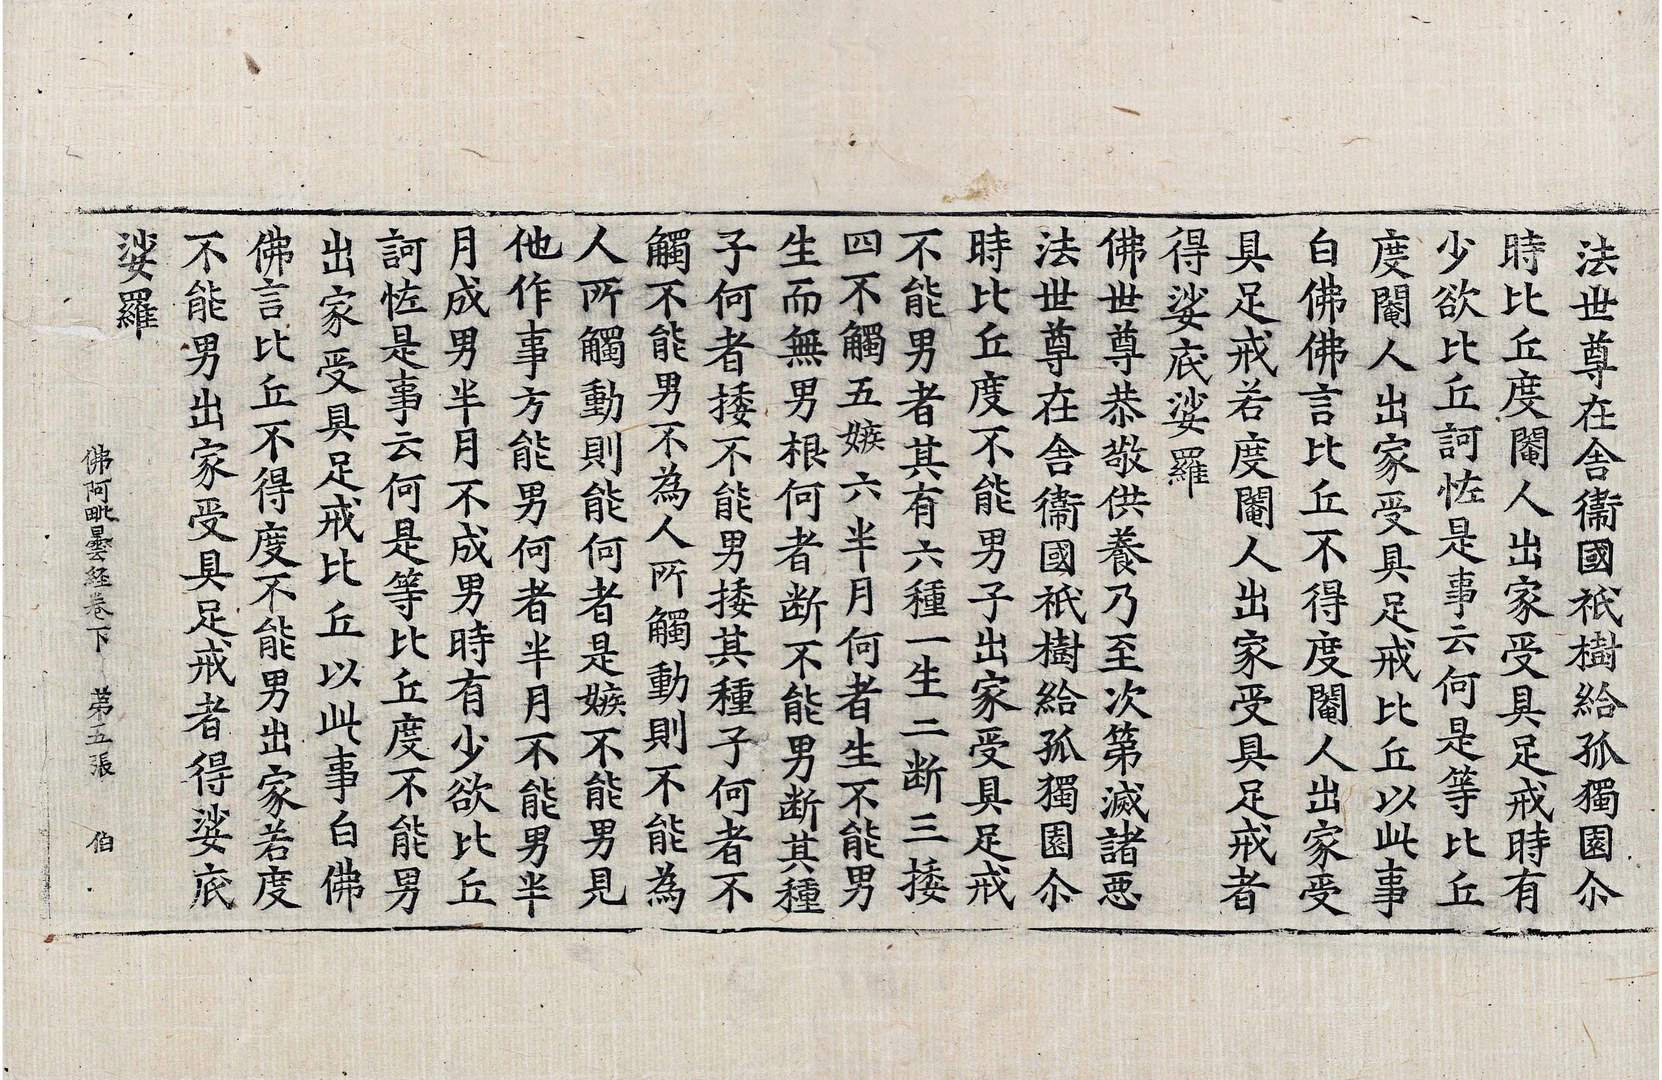 法世尊在舍衞國祇樹給孤獨園尒
時比丘度閹人出家受具足戒時有
少欲比丘訶恠是事云何是等比丘
度閹人出家受具足戒比丘以此事
白佛佛言比丘不得度閹人出家受
具足戒若度閹人出家受具足戒者
得娑底娑羅
佛世尊恭敬供養乃至次第滅諸惡
法世尊在舍衞國祇樹給孤獨園尒
時比丘度不能男子出家受具足戒
不能男者其有六種一生二断三捼
四不觸五嫉六半月何者生不能男
生而無男根何者断不能男断其種
子何者捼不能男捼其種子何者不
觸不能男不為人所觸動則不能為
人所觸動則能何者是嫉不能男見
他作事方能男何者半月不能男半
月成男半月不成男時有少欲比丘
訶恠是事云何是等比丘度不能男
出家受具足戒比丘以此事白佛
佛言比丘不得度不能男出家若度
不能男出家受具足戒者得娑底
娑羅
佛阿毗曇経卷下 第五張 伯